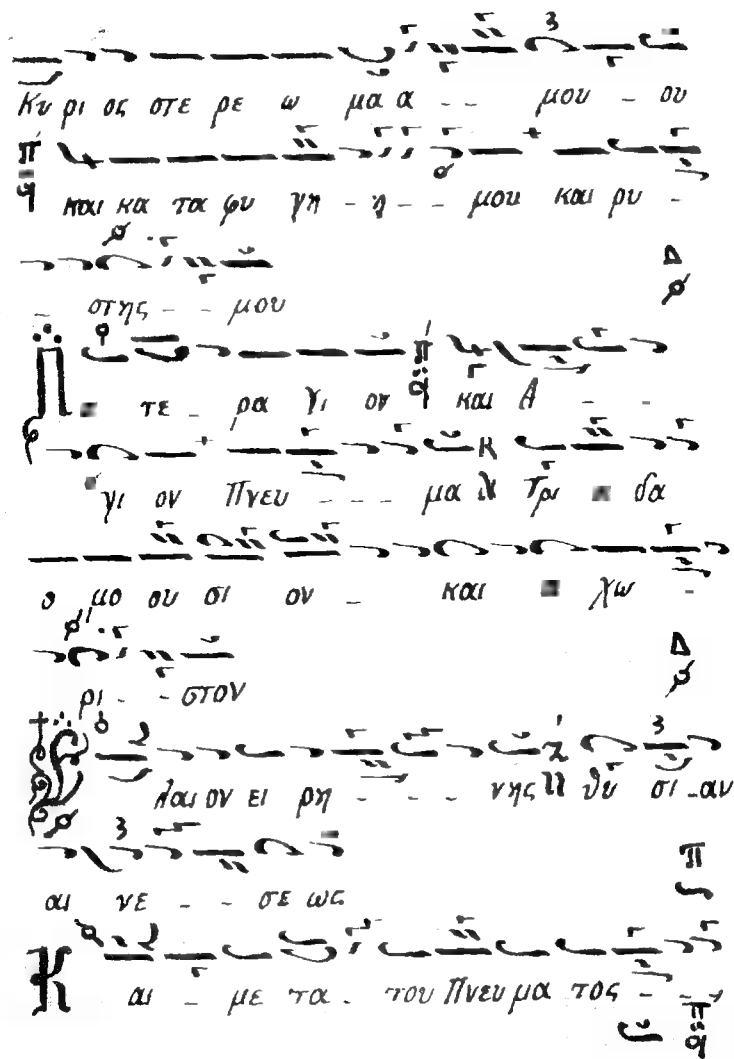 Κυ ρι ος στε ρε ω μα α - - μου - ου
και κα τα φυ γη - η - - μου και ρυ -
- στης - - μου
Π τε - ρα γι ον και Α - -
γι ον Πνευ - - - μα Τρι δα
ο μο ου σι ον - και χω -
ρι - - στον
Ε λαι ον ει ρη - - - νης θυ σι - αν
αι νε - - σε ως
Κ αι - με τα - του Πνευ μα τος - -